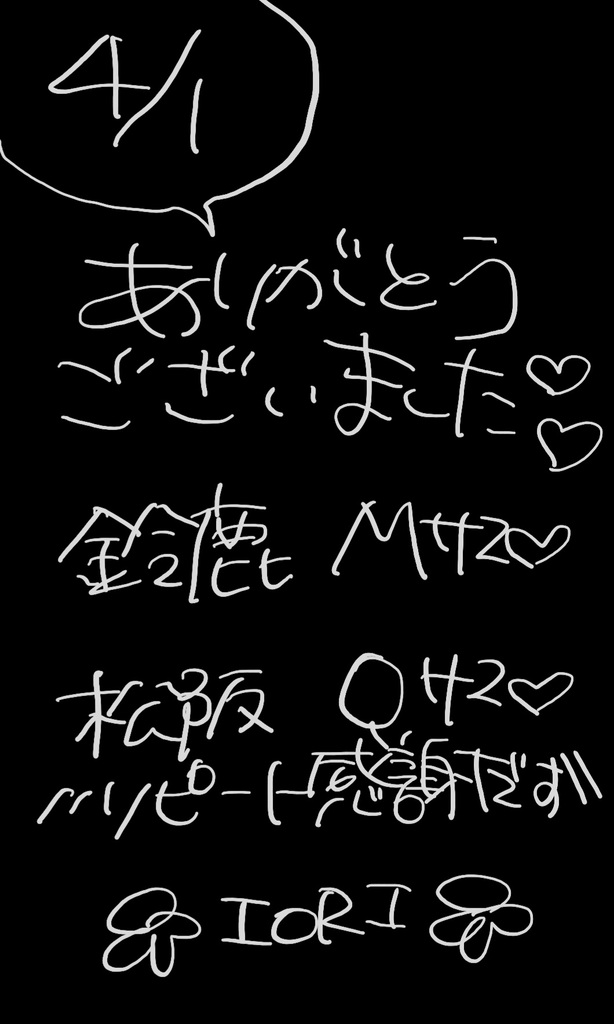 4/1
ありがとう
ございました♡♡
鈴鹿 Mサン♡
松阪 Qサン♡
リピート感謝です
IORI